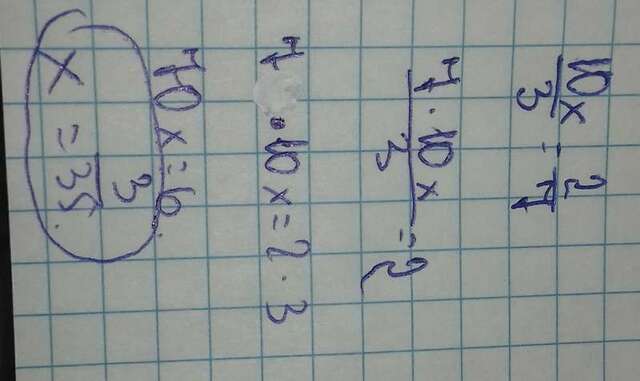 10x/3 = 2/7
7·10x/3 = 2
7·10x = 2·3
70x = 6
x = 3/35.